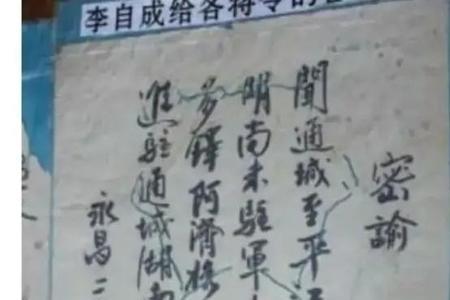 李自成给各将令的
密諭
聞通城至平江
陰南未駐軍
多鐸阿濟格
進駐通城湖南
永昌二